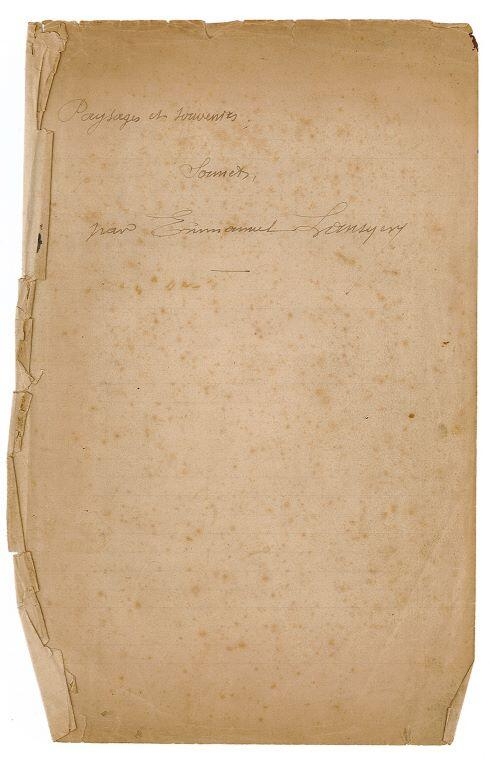 Paysages et souvenirs.
Sonnets,
par Emmanuel Lansyer